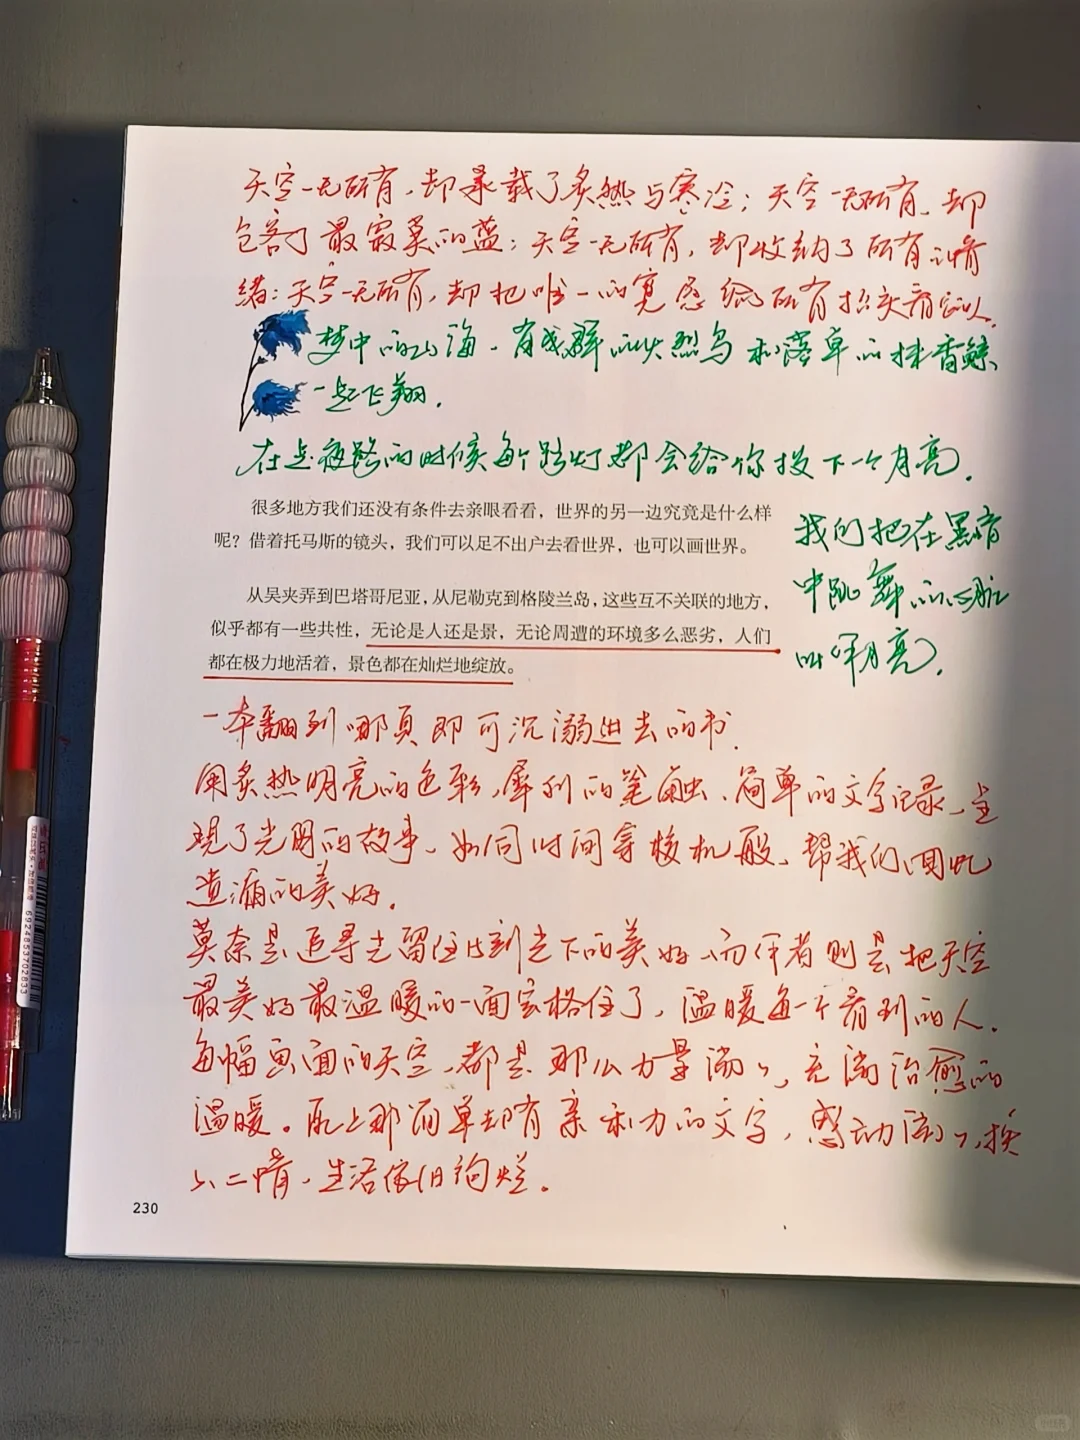 天空一无所有，却承载了炙热与寒冷；天空一无所有，却
包容了最寂寞的蓝；天空一无所有，却收纳了所有情
绪；天空一无所有，却把唯一的宽慰给所有抬头看的人。
梦中的山海，有成群的火烈鸟和落单的抹香鲸
一起飞翔。
在走夜路的时候每个路灯都会给你投下一个月亮。
很多地方我们还没有条件去亲眼看看，世界的另一边究竟是什么样
呢？借着托马斯的镜头，我们可以足不出户去看世界，也可以画世界。
我们把在黑暗
中跳舞的心脏
叫作月亮。
从吴夹弄到巴塔哥尼亚，从尼勒克到格陵兰岛，这些互不关联的地方，
似乎都有一些共性，无论是人还是景，无论周遭的环境多么恶劣，人们
都在极力地活着，景色都在灿烂地绽放。
一本翻到哪页即可沉溺进去的书。
用炙热明亮的色彩，犀利的笔触、简单的文字记录，呈
现了光阴的故事，如同时间穿梭机般，帮我们回忆
遗漏的美好。
莫奈是追寻光留住光下的美好，而作者则是把天空
最美好最温暖的一面定格住了，温暖每一个看到的人。
每幅画面的天空，都是那么力量满满，充满治愈的
温暖。配上那简单却有亲和力的文字，感动满满，换
心情，生活依旧绚烂。
230
6924853702833